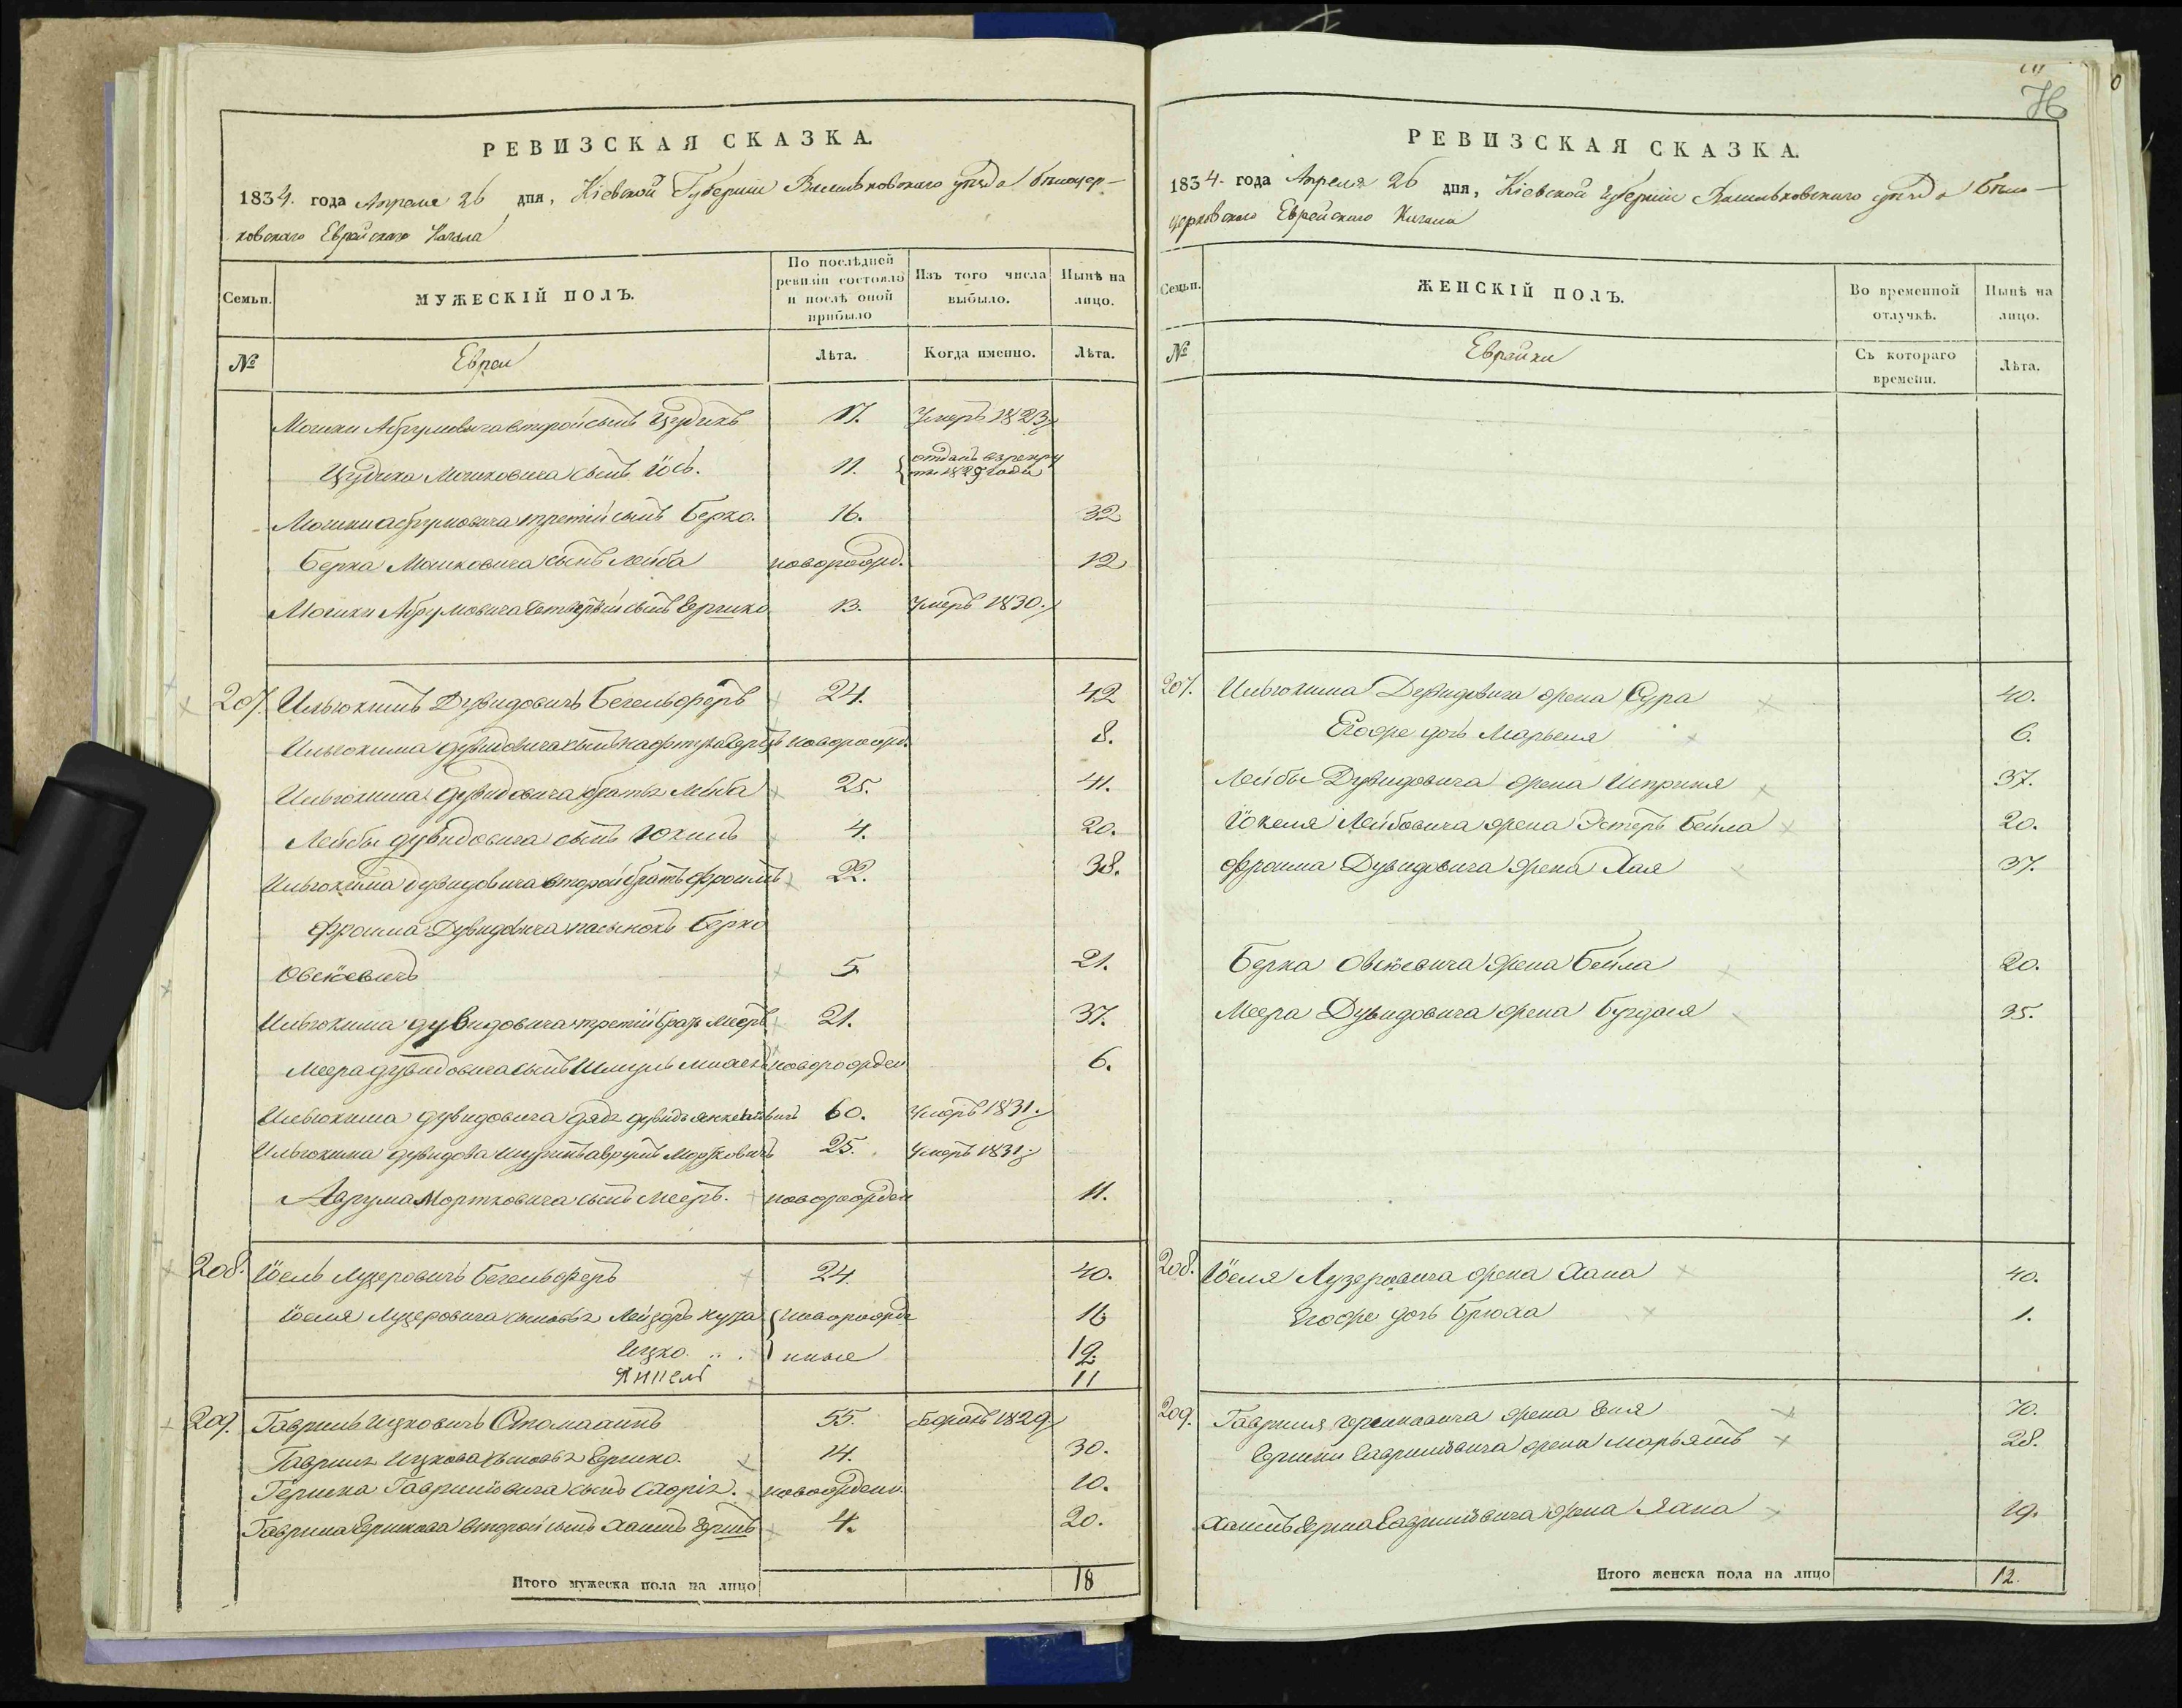 РЕВИЗСКАЯ СКАЗКА.
1834. года Апреля 26 дня, Кіевской Губерніи Васильковскаго уѣзда Бѣлоцер-
ковскаго Еврейскаго Кагала
Семьи.
МУЖЕСКІЙ ПОЛЪ.
По послѣдней ревизіи состояло и послѣ оной прибыло
Изъ того числа выбыло.
Нынѣ на лицо.
№
Евреи
Лѣта.
Когда именно.
Лѣта.
Мошки Абрумовича второй сынъ 17. Умеръ 1823
Мошковича сынъ Іось. 11. отданъ въ рекру
ты 1829 года
Мошки Абрумовича третій сынъ Берко. 16. 32
Берка Мошковича сынъ Лейба новорожд. 12
Мошки Абрумовича четвертый сынъ Гершко 13. Умеръ 1830.
207. Ильюхимъ Дувидовичъ Бегельферъ 24. 42
Ильюхима Дувидовича сынъ новорожд. 8.
Ильюхима Дувидовича братъ Лейба 25. 41.
Лейбы Дувидовича сынъ 4. 20.
Ильюхима Дувидовича второй братъ Фроимъ 22. 38.
Фроима Дувидовича пасынокъ Берко
Овсіевичъ 5 21.
Ильюхима Дувидовича третій братъ Мееръ 21. 37.
Меера Дувидовича сынъ Шмуль новорожден 6.
Ильюхима Дувидовича дядя Дувидъ 60. Умеръ 1831.
Ильюхима Дувидова шуринъ Аврумъ Мортковичъ 25. Умеръ 1831
Аврума Мортковича сынъ Мееръ. новорожден 11.
208. Іоель Лузеровичъ Бегельферъ 24. 40.
Іоеля Лузеровича сыновья Лейзоръ новорожде 16
Ицко нные 12.
11
209. Гаврилъ Ицковичъ 55. Бѣжалъ 1829
Гаврила Ицкова сыновья Гершко. 14. 30.
Гершка Гавриловича сынъ новорожден. 10.
Гаврила второй сынъ Хаимъ Гершъ 4. 20.
Итого мужеска пола на лицо 18
76
РЕВИЗСКАЯ СКАЗКА.
1834. года Апреля 26 дня, Кіевской Губерніи Васильковскаго уѣзда Бѣло-
церковскаго Еврейскаго Кагала
Семьи.
ЖЕНСКІЙ ПОЛЪ.
Во временной отлучкѣ.
Нынѣ на лицо.
№
Еврейки
Съ котораго времени.
Лѣта.
207. Ильюхима Дувидовича жена Сура 40.
Егоже дочь Марьеля 6.
Лейбы Дувидовича жена Шприня 37.
Лейбовича жена Эстеръ Бейла 20.
Фроима Дувидовича жена Хая 37.
Берка Овсіевича жена Бейла 20.
Меера Дувидовича жена 35.
208. Іоеля Лузеровича жена Хана 40.
Егоже дочь Брюха 1.
209. Гаврила жена 70.
Гершки Гавриловича жена Марьямъ 28.
Хаимъ Герша Гавриловича жена Хана 19.
Итого женска пола на лицо 12.